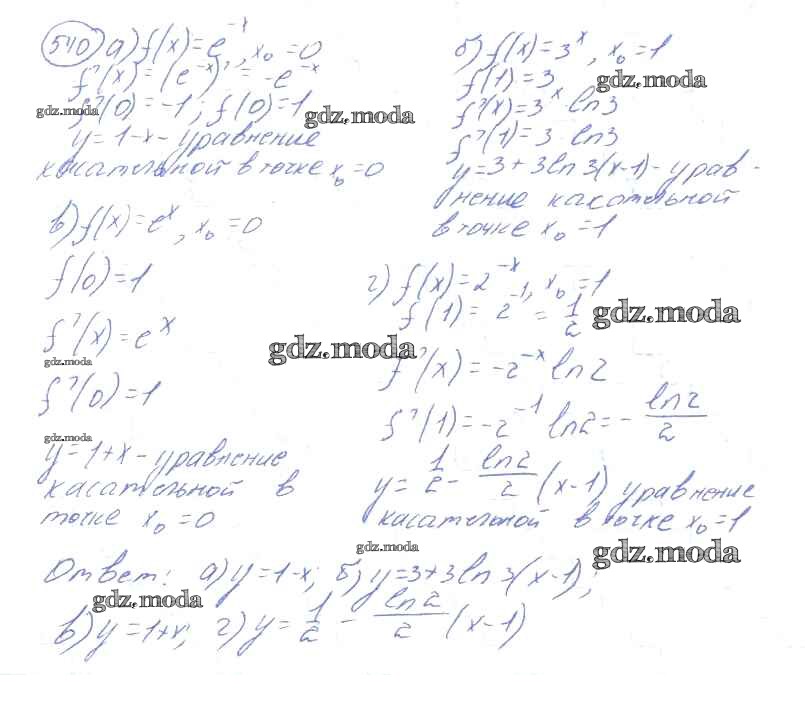 540 а) f(x) = e^-x, x₀ = 0
f'(x) = (e^-x)' = -e^-x
f'(0) = -1; f(0) = 1
y = 1-x - уравнение
касательной в точке x₀ = 0
б) f(x) = 3^x, x₀ = 1
f(1) = 3
f'(x) = 3^x ln3
f'(1) = 3 ln3
y = 3 + 3ln3(x-1) - урав-
нение касательной
в точке x₀ = 1
в) f(x) = e^x, x₀ = 0
f(0) = 1
f'(x) = e^x
f'(0) = 1
y = 1+x - уравнение
касательной в
точке x₀ = 0
г) f(x) = 2^-x, x₀ = 1
f(1) = 2^-1 = 1/2
f'(x) = -2^-x ln2
f'(1) = -2^-1 ln2 = - ln2/2
y = 1/2 - ln2/2 (x-1) уравнение
касательной в точке x₀ = 1
Ответ: а) y = 1-x; б) y = 3+3ln3(x-1);
в) y = 1+x; г) y = 1/2 - ln2/2 (x-1)
gdz.moda
gdz.moda
gdz.moda
gdz.moda
gdz.moda
gdz.moda
gdz.moda
gdz.moda
gdz.moda
gdz.moda